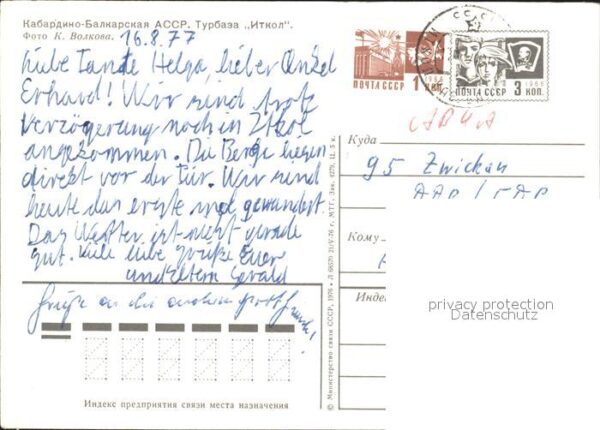 Кабардино-Балкарская АССР. Турбаза „Иткол".
Фото К. Волкова.
16.8.77
Liebe Tante Helga, lieber Onkel
Erhard! Wir sind trotz
Verzögerung noch in Itkol
angekommen. Die Berge liegen
direkt vor der Tür. Wir sind
heute das erste mal gewandert.
Das Wetter ist nicht gerade
gut. Viele liebe Grüße Euer
und Eltern Gerald
Grüße an die anderen
ПОЧТА СССР 1 КОП.
ПОЧТА СССР 3 КОП.
1966
Куда
95 Zwickau
ДДР / ГДР
Кому
Индекс
Министерство связи СССР, 1976
Индекс предприятия связи места назначения
privacy protection
Datenschutz